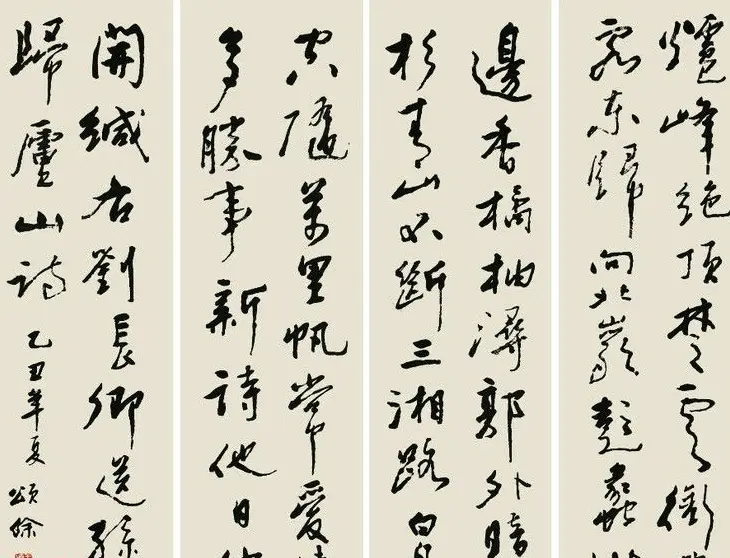 爐峰絶頂楚雲銜
客東歸向北巖彭蠡
邊香橘柚潯郭外暗
杉青山不斷三湘路白
空隨萬里帆常愛
多勝事新詩他日
開緘右劉長卿送孫
歸廬山詩
乙丑年夏頌餘